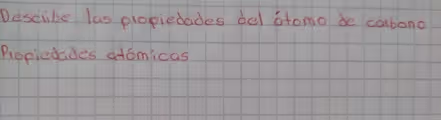 Describe las propiedades del átomo de carbono
Propiedades atómicas